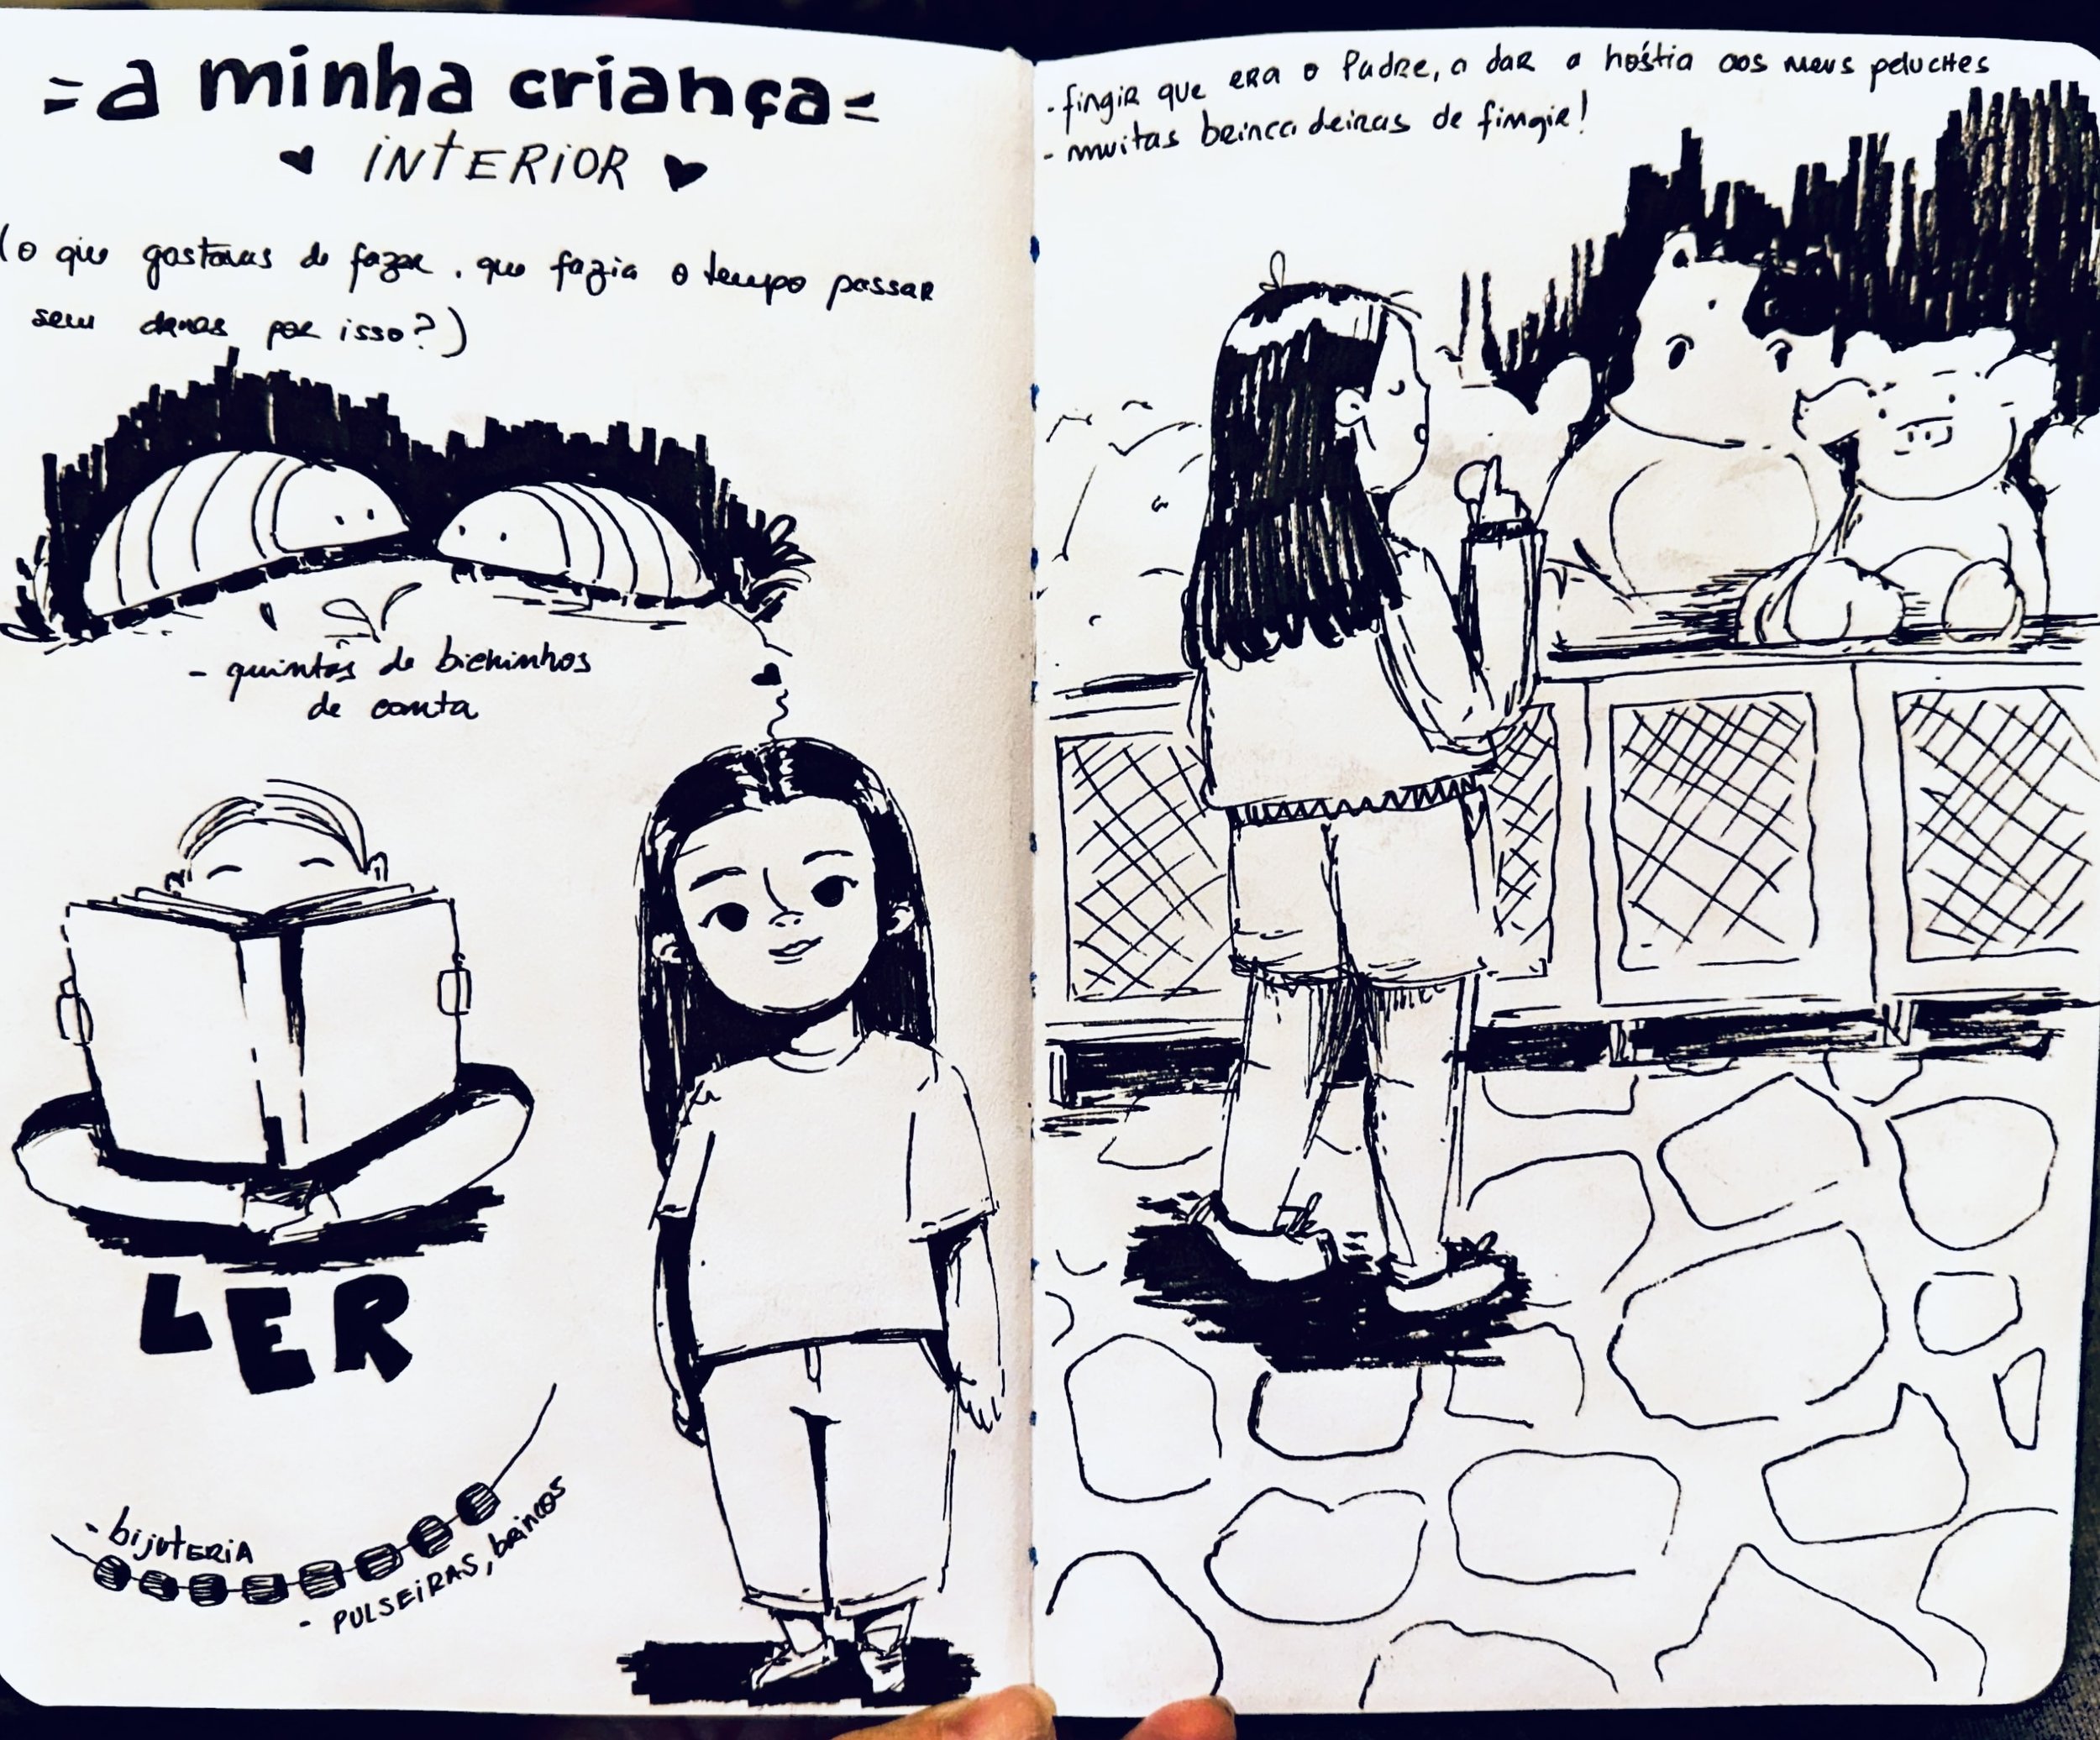 = a minha criança =
♥ INTERIOR ♥
(o que gostavas de fazer, que fazia o tempo passar
sem dares por isso?)
- quintas de bichinhos
de conta
LER
- bijuteria
- PULSEIRAS, brincos
- fingir que era o Padre, a dar a hóstia aos meus peluches
- muitas brincadeiras de fingir!